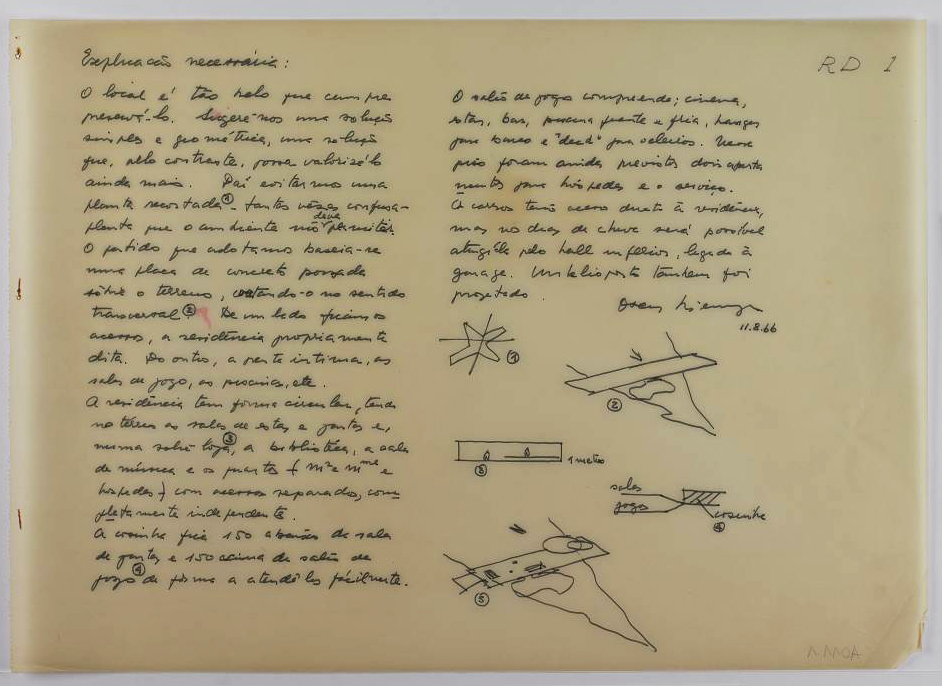 Explicação necessária:
RD 1
O local é tão belo que cumpre
preservá-lo. Sugere-nos uma solução
simples e geométrica, uma solução
que, pelo contraste, possa valorizá-lo
ainda mais. Daí evitarmos uma
planta recortada ① - tantas vezes confusa -
planta que o ambiente não deve permitir.
O partido que adotamos baseia-se
numa placa de concreto pousada
sôbre o terreno, cortando-o no sentido
transversal ②. De um lado ficam os
acessos, a residência propriamente
dita. Do outro, a parte intima, as
salas de jogo, as piscinas, etc.
A residência tem forma circular, tendo
no térreo as salas de estar e jantar e,
numa sobre loja, ③ a biblioteca, a sala
de música e os quartos ( mr e mme e
hospedes ) com acessos separados, com-
pletamente independente.
A cosinha fica 150 abaixo da sala
de jantar e 150 acima do salão de
jogo ④ de forma a atendê-los fácilmente.
O salão de jogo compreende; cinema,
estar, bar, piscina quente e fria, hangar
para barco e "deck" para veleiros. Nesse
piso foram ainda previstos dois aparta
mentos para hóspedes e o serviço.
Os carros terão acesso direto à residência,
mas no dias de chuva será possível
atingi-la pelo hall inferior, ligado à
garage. Um heliporto também foi
projetado.
Oscar Niemeyer
11.8.66
①
②
③
1 metro
salas
jogo
cosinha
④
⑤